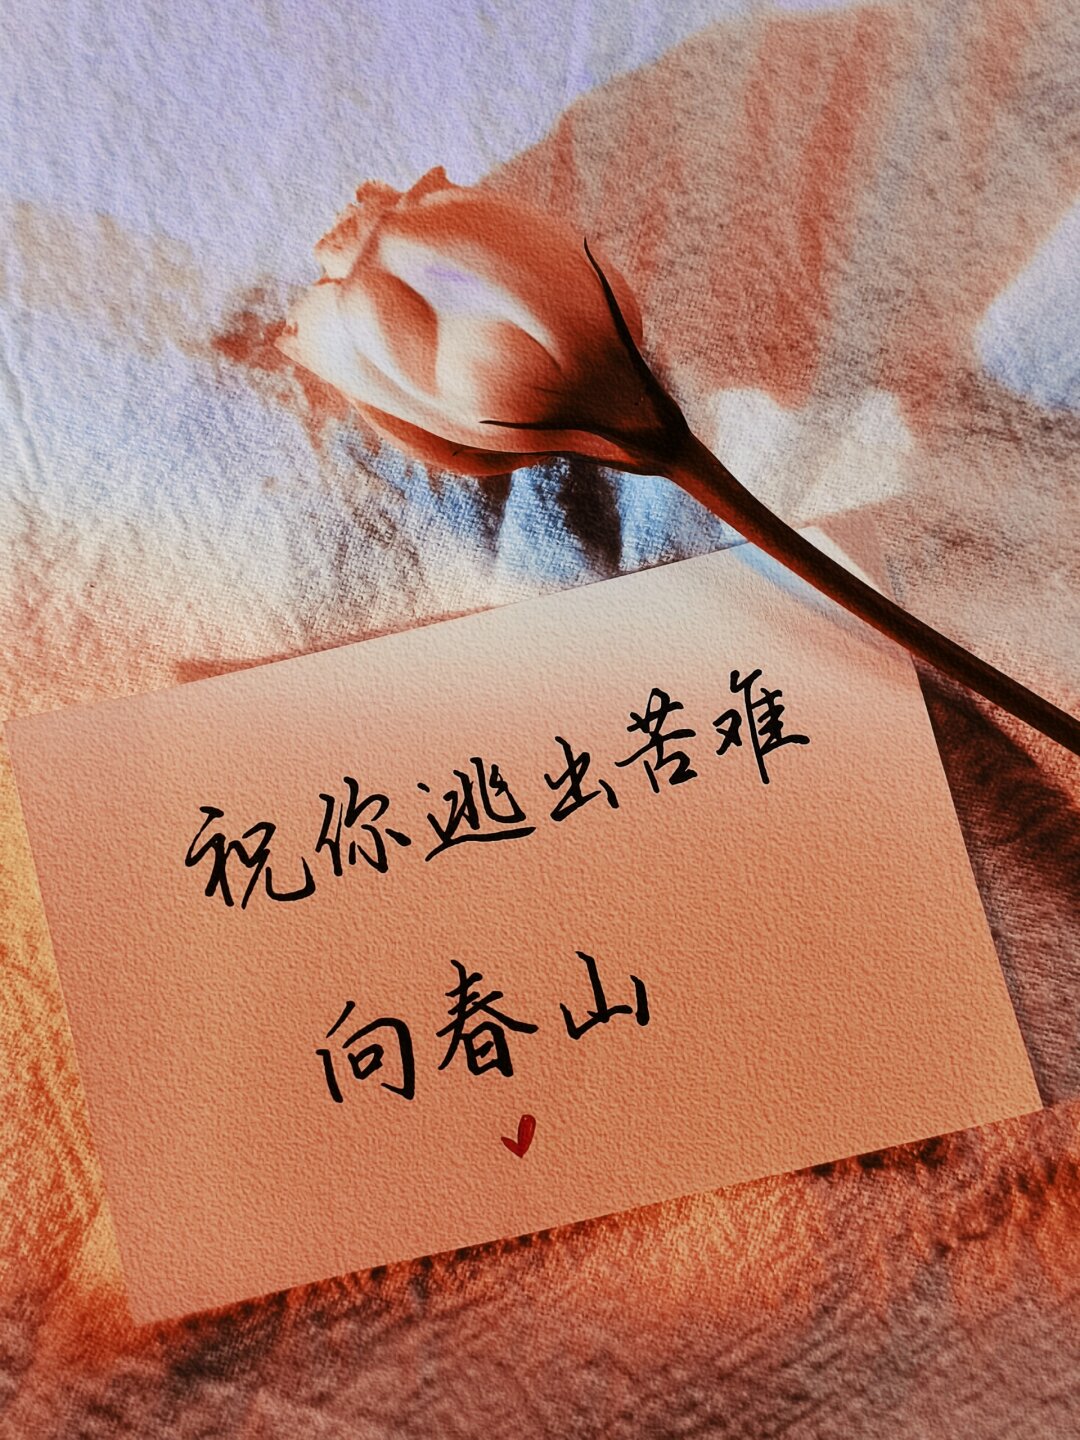 祝你逃出苦难
向春山